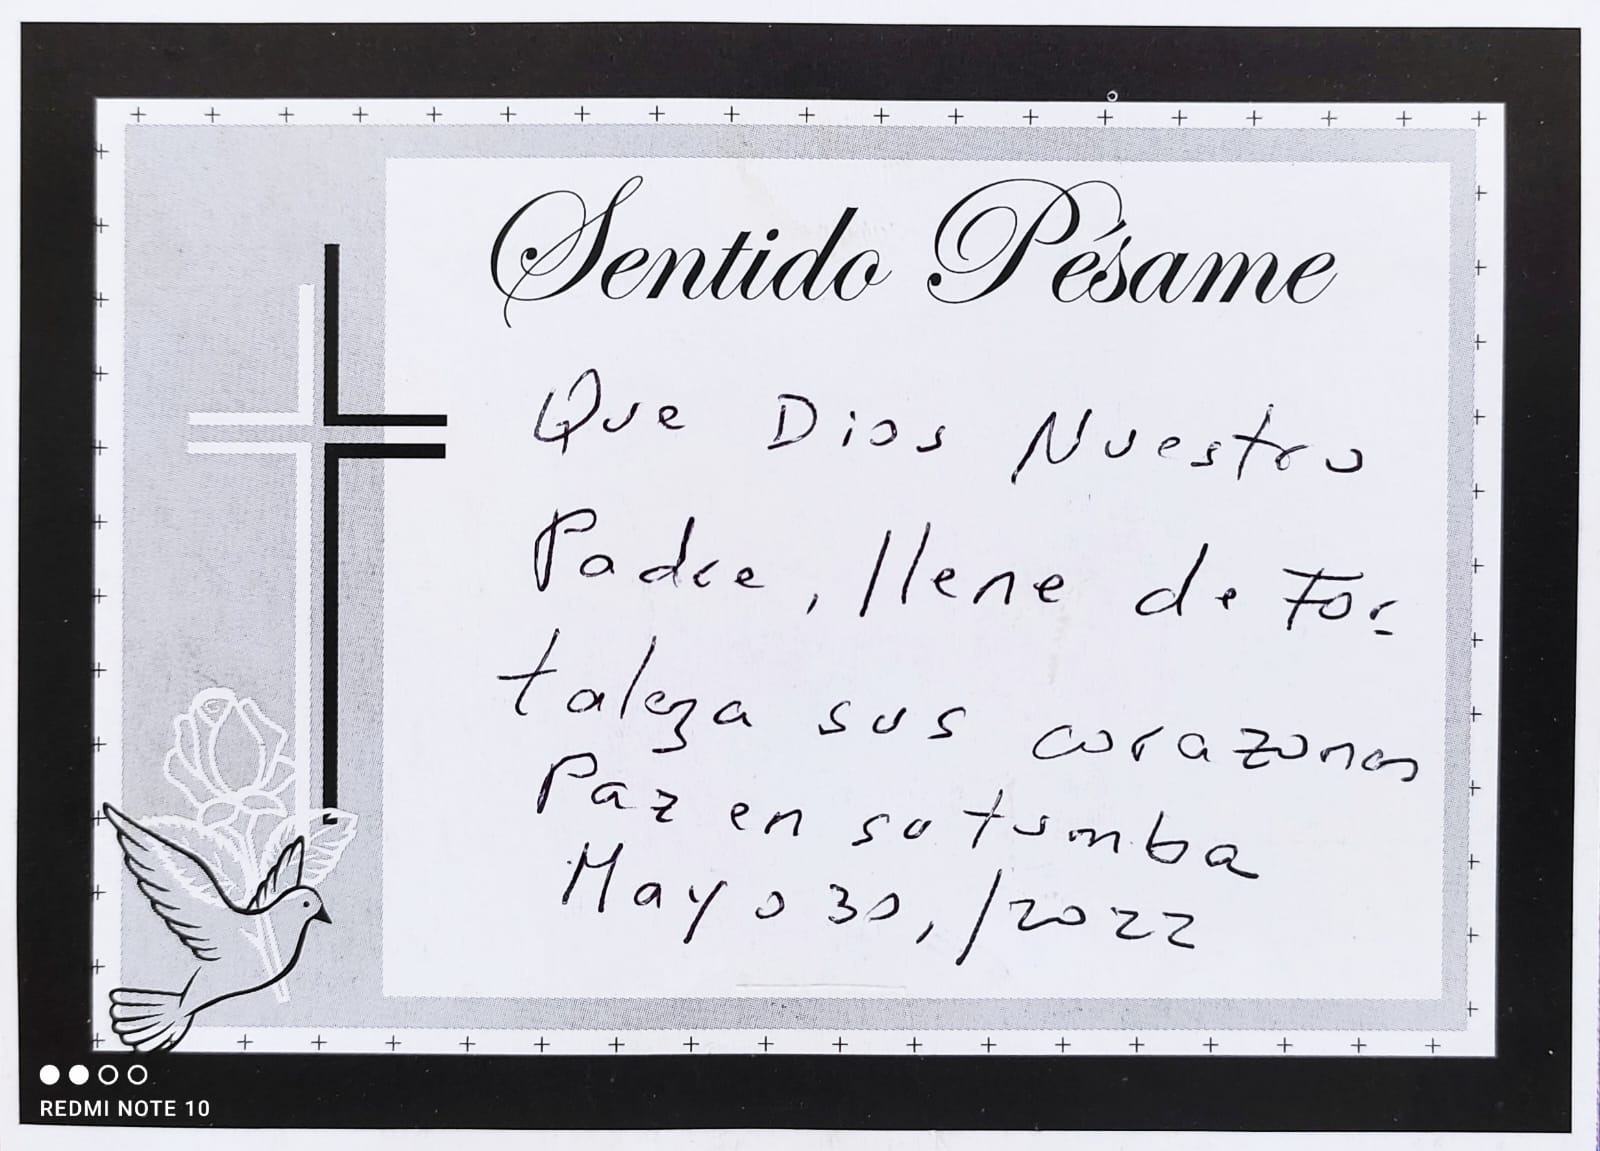 Sentido Pésame
Que Dios Nuestro
Padre, llene de For-
taleza sus corazones
Paz en su tumba
Mayo 30,/2022
REDMI NOTE 10